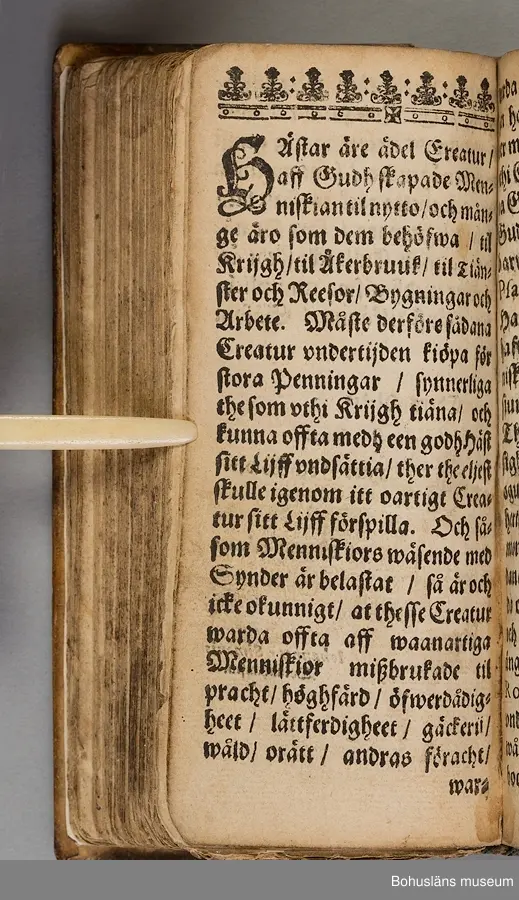 HÄstar äre ädel Creatur/
aff Gudh skapade Men-
niskian til nytto/ och mån-
ge äro som dem behöfwa / til
Krijgh/ til Åkerbruuk/ til Tiän-
ster och Reesor/ Bygningar och
Arbete. Måste derföre sådana
Creatur vndertijden kiöpa för
stora Penningar / synnerliga
the som vthi Krijgh tiäna/ och
kunna offta medh een godh Häst
sitt Lijff vndsättia/ ther the eljest
skulle igenom itt oartigt Crea-
tur sitt Lijff förspilla. Och så-
som Menniskiors wäsende med
Synder är belastat / så är och
icke okunnigt/ at thesse Creatur
warda offta aff waanartiga
Menniskior mißbrukade til
pracht/ höghfärd / öfwerdådig-
heet / lättferdigheet / gäckerij/
wåld/ orätt / andras föracht/
war-
Bohusläns museum